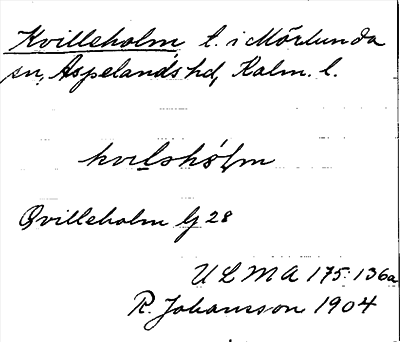 Kvilleholm t. i Mörlunda
sn, Aspelands hd, Kalm. l.
kvilshólm
Qvilleholm Gf 28
ULMA 175:136a
R. Johansson 1904